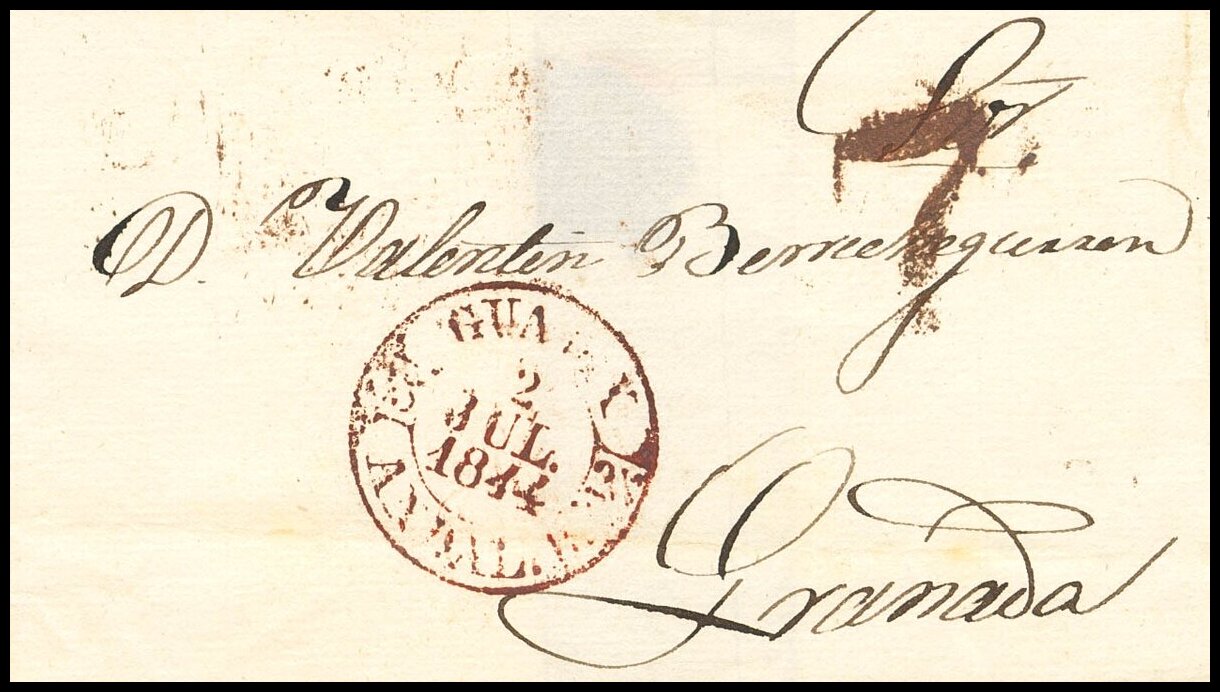 Sor.
7
D. Valentin Berrueneguren
GUA
2
JUL.
1844
AND. BAJ.
Granada